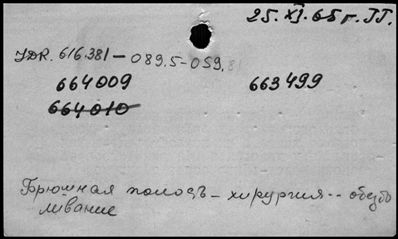 25.XI.65 г. II.
УДК. 616.381 – 089.5-059.81
664009 663499
664010
Брюшная полость – хирургия -- обезбо
ливание